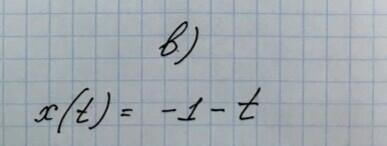 в)
x(t) = -1 - t